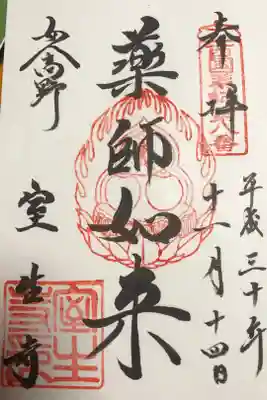 奉拝
平成三十年
十一月十四日
藥師如来
女人高野
室生寺